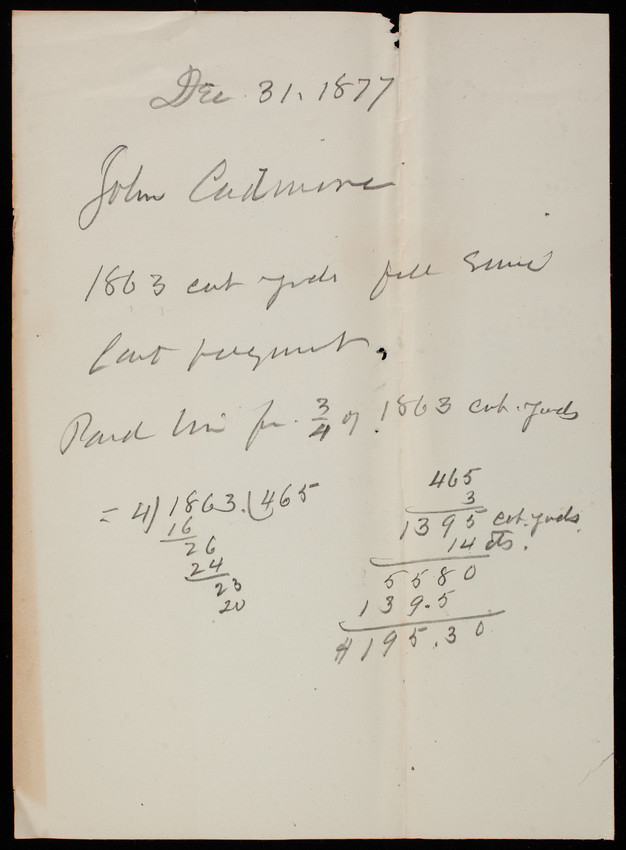 Dec 31. 1877
John Cudmore
1863 cub yards fill since
last payment.
Paid him for 3/4 of 1863 cub. yards
= 4) 1863. ( 465
16
26
24
23
20
465
3
1395 cub. yards.
14 cts.
5580
139.5
$195.30